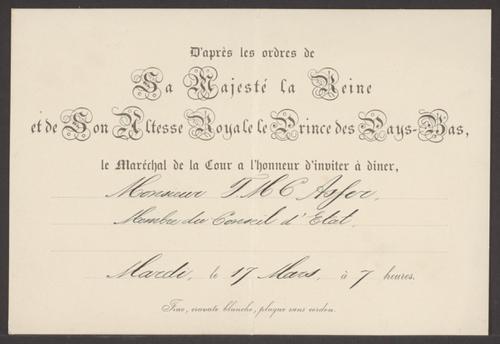 D'après les ordres de
Sa Majesté la Reine
et de Son Altesse Royale le Prince des Pays-Bas,
le Maréchal de la Cour a l'honneur d'inviter à diner,
Monsieur T M C Asser.
Membre du Conseil d'Etat.
Mardi, le 17 Mars, à 7 heures.
Frac, cravate blanche, plaque sans cordon.